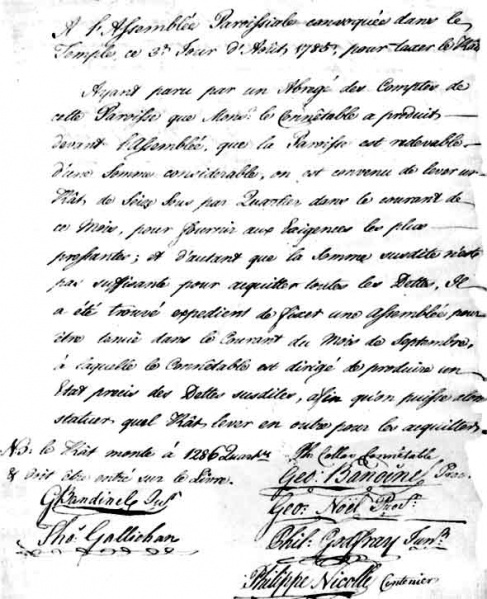 A l'Assemblée Paroissiale convoquée dans le
Temple, ce 3e. Jour d'Août, 1785, pour taxer le Rât
Ayant paru par un Abregé des Comptes de
cette Paroisse que Monsr. le Connétable a produit
devant l'Assemblée, que la Paroisse est redevable
d'une Somme considerable, on est convenu de lever un
Rât de Seize Sous par Quartier dans le courant de
ce Mois, pour fournir aux Exigences les plus
pressantes; et d'autant que la Somme susdite n'est
pas suffisante pour acquitter toutes les Dettes, Il
a été trouvé expedient de fixer une Assemblée pour
être tenue dans le Courant du Mois de Septembre,
à laquelle le Connétable est dirigé de produire un
Etat precis des Dettes susdites, afin qu'on puisse alors
statuer quel Rât lever en outre pour les acquitter
NB. le Rât monte à 1286 Quartrs
& doit être entré sur le Livre.
Ph. Collas Connétable
Geo. Bandinel Proc.
G. Bandinel Junr
Geo: Noël Procr.
Tho. Gallichan
Phil. Godfray Junr.
Philippe Nicolle Centenier